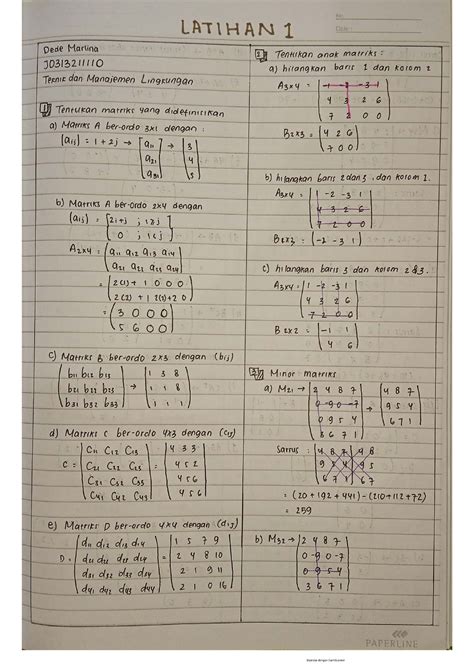 LATIHAN 1
No:
Date:
Dede Marlina
J0313211110
Teknik dan Manajemen Lingkungan
1 Tentukan matriks yang didefinisikan
a) Matriks A ber-ordo 3x1 dengan :
[aij] = i + 2j → [a11 → [3
a21 4
a31] 5]
b) Matriks A ber-ordo 2x4 dengan
[aij] = [2i+j ; i≥j
0 ; i<j]
A2x4 = (a11 a12 a13 a14
a21 a22 a23 a24)
= (2(1)+1 0 0 0
2(2)+1 2(2)+2 0)
= (3 0 0 0
5 6 0 0)
c) Matriks B ber-ordo 2x3 dengan (bij)
(b11 b12 b13 = (1 3 8
b21 b22 b23 1 1 8
b31 b32 b33) 1 1 1)
d) Matriks C ber-ordo 4x3 dengan (cij)
C = (C11 C12 C13 = (4 3 3
C21 C22 C23 4 5 2
C31 C32 C33 4 5 6
C41 C42 C43) 4 5 6)
e) Matriks D ber-ordo 4x4 dengan (dij)
D = (d11 d12 d13 d14 = (1 5 7 9
d21 d22 d23 d24 2 4 8 10
d31 d32 d33 d34 2 1 9 11
d41 d42 d43 d44) 2 1 0 16)
2 Tentukan anak matriks :
a) hilangkan baris 1 dan kolom 2
A3x4 = (1 -2 -3 1
4 3 2 6
7 2 0 0)
B2x3 = (4 2 6
7 0 0)
b) hilangkan baris 2 dan 3, dan kolom 1.
A3x4 = (1 -2 -3 1
4 3 2 6
7 2 0 0)
B2x3 = (-2 -3 1)
c) hilangkan baris 3 dan kolom 2 & 3.
A3x4 = (1 -2 -3 1
4 3 2 6
7 2 0 0)
B2x2 = (-1 1
4 6)
3 Minor matriks
a) M21 → (2 4 8 7 → (4 8 7
0 -9 0 -7 9 5 4
0 9 5 4 6 7 1)
3 6 7 1)
Sarrus : (4 8 7) 4 8
9 5 4 9 5
6 7 1 6 7
= (20 + 192 + 441) - (210 + 112 + 72)
= 259
b) M32 → (2 4 8 7
0 -9 0 -7
0 9 5 4
3 6 7 1)
PAPERLINE